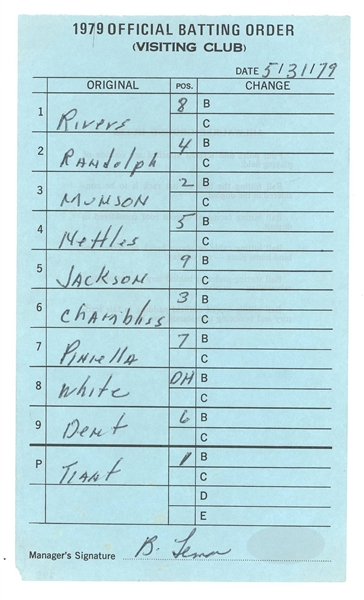 1979 OFFICIAL BATTING ORDER
(VISITING CLUB)
DATE 5/31/79
ORIGINAL POS. CHANGE
1 Rivers 8 B
C
2 Randolph 4 B
C
3 Munson 2 B
C
4 Nettles 5 B
C
5 Jackson 9 B
C
6 Chambliss 3 B
C
7 Piniella 7 B
C
8 White DH B
C
9 Dent 6 B
C
P Tiant 1 B
C
D
E
Manager's Signature B. Lemon